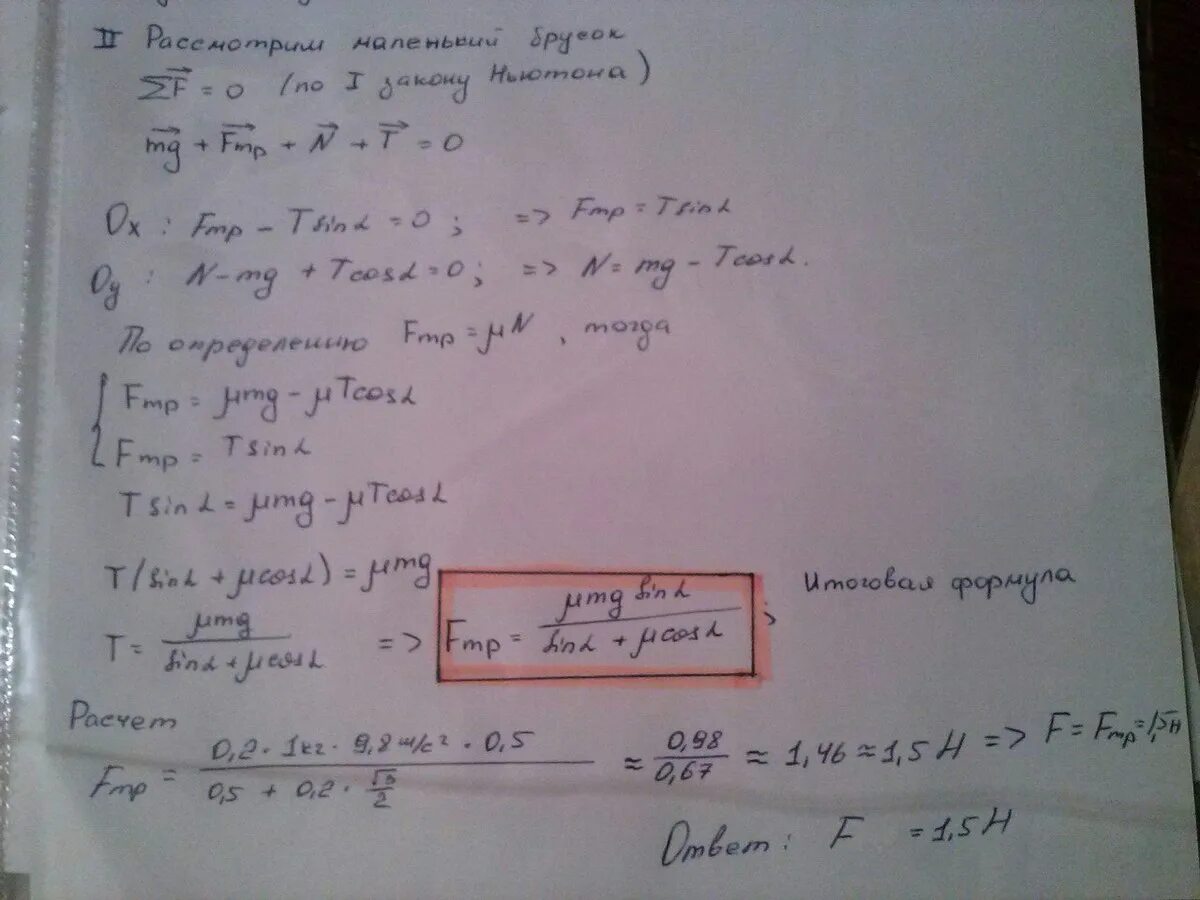 II Рассмотрим маленький брусок
ΣF⃗ = 0 (по I закону Ньютона)
mg⃗ + Fтр⃗ + N⃗ + T⃗ = 0
Ox : Fтр - T sinα = 0 ; => Fтр = T sinα
Oy : N - mg + T cosα = 0 ; => N = mg - T cosα.
По определению Fтр = μN , тогда
{ Fтр = μmg - μT cosα
Fтр = T sinα
T sinα = μmg - μT cosα
T (sinα + μcosα) = μmg
T = μmg / (sinα + μcosα) => Fтр = μmg sinα / (sinα + μcosα) ; Итоговая формула
Расчет
Fтр = 0,2 · 1кг · 9,8 м/с² · 0,5 / (0,5 + 0,2 · √3/2) ≈ 0,98/0,67 ≈ 1,46 ≈ 1,5 Н => F = Fтр = 1,5 Н
Ответ : F = 1,5 Н